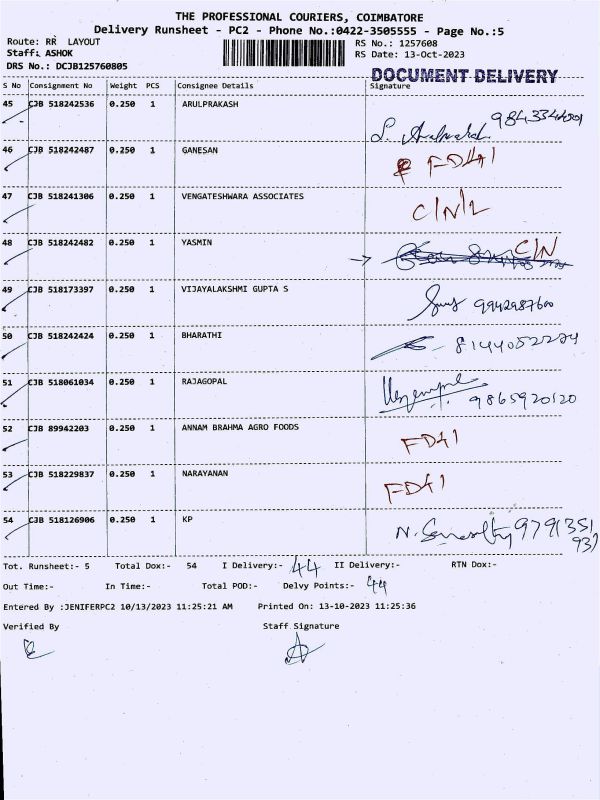 THE PROFESSIONAL COURIERS, COIMBATORE
Delivery Runsheet - PC2 - Phone No.:0422-3505555 - Page No.:5
Route: RR LAYOUT RS No.: 1257608
Staff: ASHOK RS Date: 13-Oct-2023
DRS No.: DCJB125760805
DOCUMENT DELIVERY
S No Consignment No Weight PCS Consignee Details Signature
45 CJB 518242536 0.250 1 ARULPRAKASH
46 CJB 518242487 0.250 1 GANESAN FD41
47 CJB 518241306 0.250 1 VENGATESHWARA ASSOCIATES C/N/L
48 CJB 518242482 0.250 1 YASMIN C/N
49 CJB 518173397 0.250 1 VIJAYALAKSHMI GUPTA S 9942987600
50 CJB 518242424 0.250 1 BHARATHI
51 CJB 518061034 0.250 1 RAJAGOPAL 9865920120
52 CJB 89942203 0.250 1 ANNAM BRAHMA AGRO FOODS FD41
53 CJB 518229837 0.250 1 NARAYANAN FD41
54 CJB 518126906 0.250 1 KP 9791351
937
Tot. Runsheet:- 5 Total Dox:- 54 I Delivery:- 44 II Delivery:- RTN Dox:-
Out Time:- In Time:- Total POD:- Delvy Points:- 44
Entered By :JENIFERPC2 10/13/2023 11:25:21 AM Printed On: 13-10-2023 11:25:36
Verified By Staff Signature